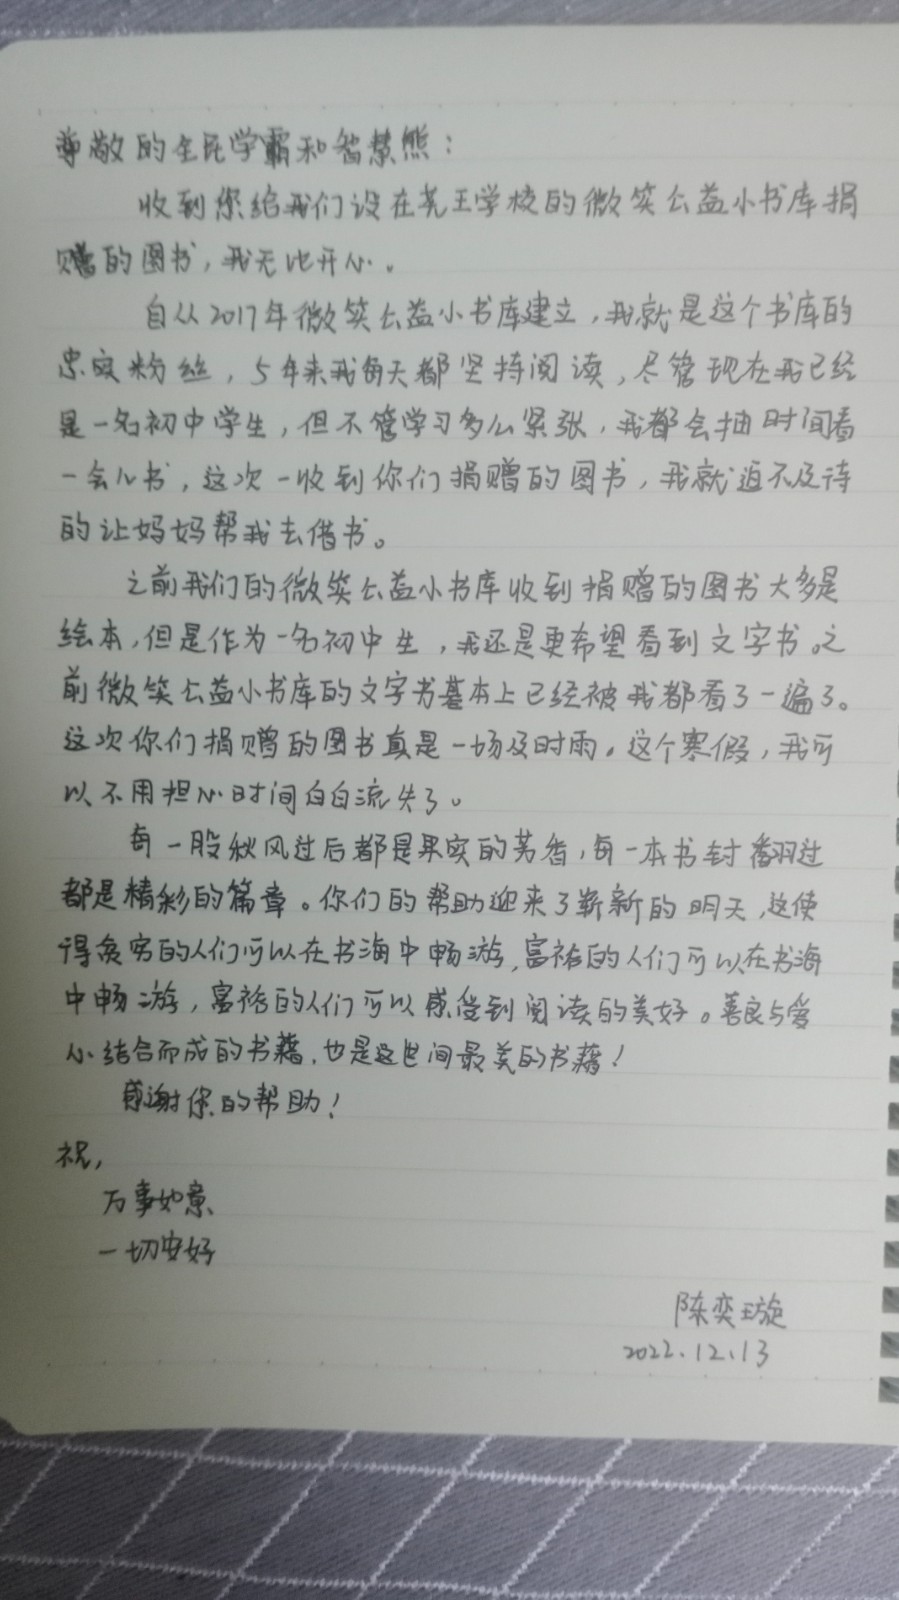 尊敬的全民学霸和智慧熊：
收到您给我们设在尧王学校的微笑公益小书库捐
赠的图书，我无比开心。
自从2017年微笑公益小书库建立，我就是这个书库的
忠实粉丝，5年来我每天都坚持阅读，尽管现在我已经
是一名初中学生，但不管学习多么紧张，我都会抽时间看
一会儿书，这次一收到你们捐赠的图书，我就迫不及待
的让妈妈帮我去借书。
之前我们的微笑公益小书库收到捐赠的图书大多是
绘本，但是作为一名初中生，我还是更希望看到文字书。之
前微笑公益小书库的文字书基本上已经被我都看了一遍了。
这次你们捐赠的图书真是一场及时雨。这个寒假，我可
以不用担心时间白白流失了。
每一股秋风过后都是果实的芳香，每一本书封翻过
都是精彩的篇章。你们的帮助迎来了崭新的明天，这使
得贪穷的人们可以在书海中畅游，富裕的人们可以在书海
中畅游，富裕的人们可以感受到阅读的美好。善良与爱
心结合而成的书籍，也是这世间最美的书籍！
感谢您的帮助！
祝，
万事如意
一切安好
陈奕璇
2022.12.13